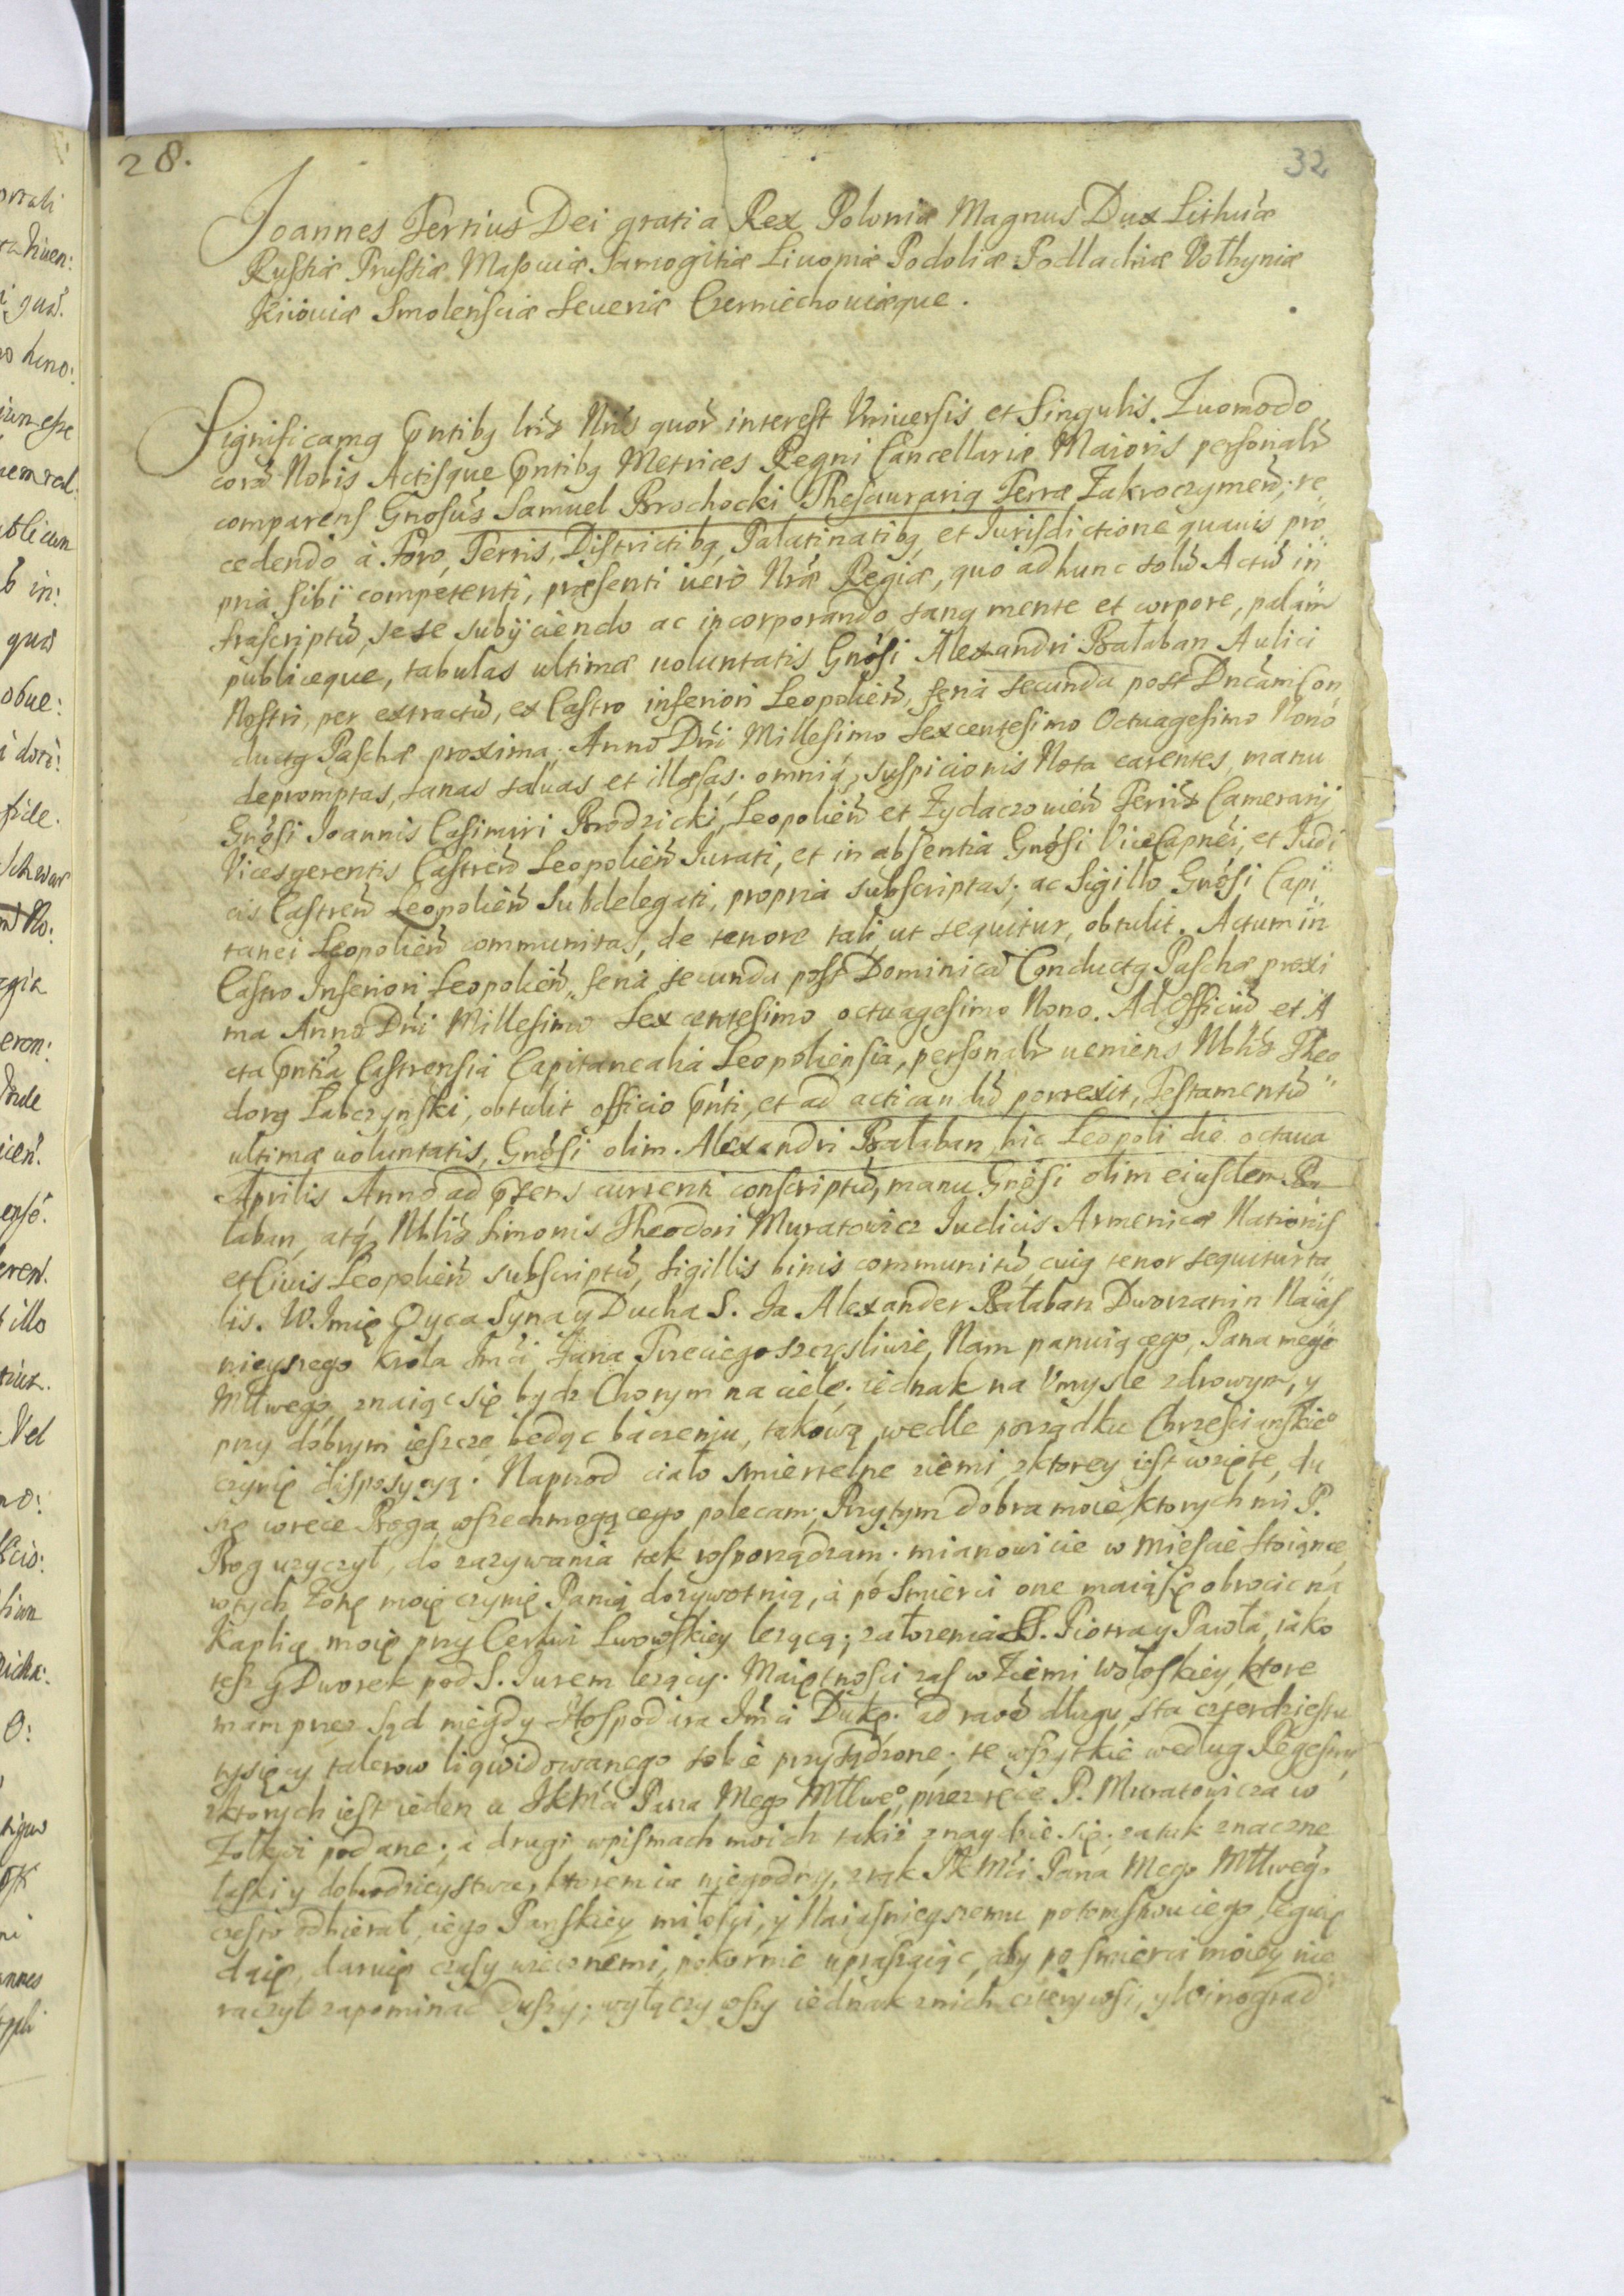 28.
32
Joannes Tertius Dei gratia Rex Poloniæ Magnus Dux Lithuæ
Russiæ Prussiæ Masouiæ Samogitiæ Liuoniæ Podoliæ Podlachiæ Volhyniæ
Kiiouiæ Smolensciæ Seueriæ Czerniechouiæque.
Significamq Pntibq lris Nris quor interest Vniuersis et Singulis. Quomodo
corã Nobis Actisque Pntibq Metrices Regni Cancellariæ Maioris personalr
comparens Gnosus Samuel Brochocki Thesaurariq Terræ Zakroczymen, re
cedendo à Foro, Terris, Districtibq, Palatinatibq et Jurisdictione quauis pro
pria sibi competenti, præsenti uerò Nræ Regiæ, quo ad hunc solũ Actũ in
frascriptũ, sese subijciendo ac incorporando, sanq mente et corpore, palam
publiceque, tabulas ultimæ uoluntatis Gnosi Alexandri Bałaban Aulici
Nostri, per extractũ, ex Castro inferiori Leopolien, feria secunda post Dncam Con
ductq Paschæ proxima, Anno Dni Millesimo Sexcentesimo Octuagesimo Nono
depromptas, sanas saluas et illæsas, omniq suspicionis Nota carentes, manu
Gnosi Joannis Casimiri Brodzicki, Leopolien et Zydaczouien Terris Camerarij
Vicesgerentis Castren Leopolien Jurati, et in absentia Gnosi ViceCapnei, et Judi
cis Castren Leopolien Subdelegati, propria subscriptas; ac Sigillo Gnosi Capi
tanei Leopolien communitas, de tenore tali, ut sequitur, obtulit. Actum in
Castro Inferiori Leopolien, feria secunda post Dominicã Conductq Paschæ proxi
ma Anno Dni Millesimo Sexcentesimo octuagesimo Nono. Ad Officiũ et A
cta Pntia Castrensia Capitanealia Leopoliensia, personalr ueniens Nblis Theo
dorq Labczynski, obtulit officio Pnti, et ad acticandũ porrexit, Testamentũ
ultimæ uoluntatis, Gnosi olim Alexandri Bałaban hic Leopoli die octaua
Aprilis Anno ad præsens currenti conscriptũ, manu Gnosi olim eiusdem Ba
łaban, atq Nblis Simonis Theodori Muratowicz Judicis Armenicæ Nationis
et Ciuis Leopolien subscriptũ, Sigillis binis communitũ, cuiq tenor sequitur ta
lis. W Imię Oyca Syna y Ducha S. Ja Alexander Bałaban Dworzanin Naias
nieyszego Krola Jmci Jana Trzeciego szczęsliwie, Nam panuiącego, Pana mego
Młłwego, znaiąc się bydz Chorym na ciele, iednak na Vmysle zdrowym, y
przy dobrym ieszcze będąc baczeniu, takową wedle porządku Chrzescianskieo
czynię disposycyą. Naprzod ciało smiertelne ziemi zktorey iest wzięte, du
szę wręce Boga wszechmogącego polecam; Przytym dobra moie, ktorych mi P.
Bog uzyczył, do zazywania tak rosporządzam: mianowicie w miescie stoiące,
wtych Zonę moię czynię Panią dozywotnią, a po smierci one maią się obrocic na
Kaplię moię przy Cerkwi Lwowskiey lezącą; załozenia SS. Piotra y Pawła, iako
tesz y Dworek pod S. Jurem lezący. Maiętnosci zas w Ziemi Wołoskiey, ktore
mam przez Sąd niegdy Hospodara Jmci Dukę ad raoẽ dlugu, sta czterdziestu
tysięcy talerow liqwidowanego sobie przysądzone, te wszytkie według Regestru
zktorych iest ieden u JKMci Pana Mego Młłweo, przez ręce P. Muratowicza w
Zolkwi podane; a drugi wpismach moich takiz znaydzie się; za tak znaczne
łaski y dobrodzieystwa, ktorem ia niegodny, zrąk JKMci Pana Mego Młłwego
często odbierał, iego Panskiey miłosci, y Naiasnieyszemu potomstwu iego, leguię
daię, daruię czasy wiecznemi, pokornie upraszaiąc, aby po smierci moiey nie
raczył zapominac Duszy; wyłączywszy iednak znich cztery wsi, y Winograd